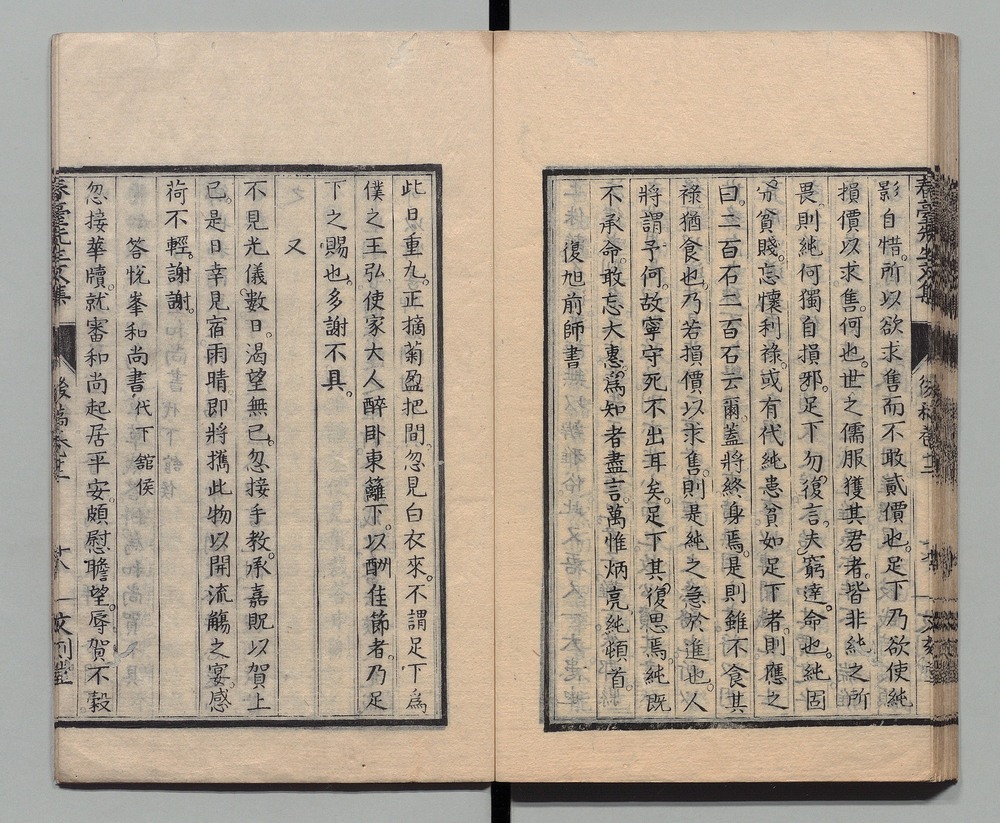 影自惜。所以欲求售而不敢貳價也。足下乃欲使純
損價以求售。何也。世之儒服獲其君者。皆非純之所
畏。則純何獨自損邪。足下勿復言。夫窮達命也。純固
分貧賤。忘懷利祿。或有代純患貧。如足下者。則應之
曰。二百石二百石云爾。蓋將終身焉。是則雖不食其
祿猶食也。乃若損價以求售。則是純之急於進也。人
將謂予何。故寧守死不出耳矣。足下其復思焉。純旣
不承命。敢忘大惠。爲知者盡言。萬惟炳亮。純頓首。
復旭前師書
春臺先生文集 後稿卷十二
此日重九。正摘菊盈把間。忽見白衣來。不謂足下爲
僕之王弘。使家大人醉臥東籬下。以酬佳節者。乃足
下之賜也。多謝不具。
又
不見光儀數日。渴望無已。忽接手教。承嘉貺以賀上
巳。是日幸見宿雨晴。即將攜此物以開流觴之宴。感
荷不輕。謝謝。
答悅峯和尚書 代下館侯
忽接華牘。就審和尚起居平安。頗慰瞻望。辱賀不穀
春臺先生文集 後稿卷十二